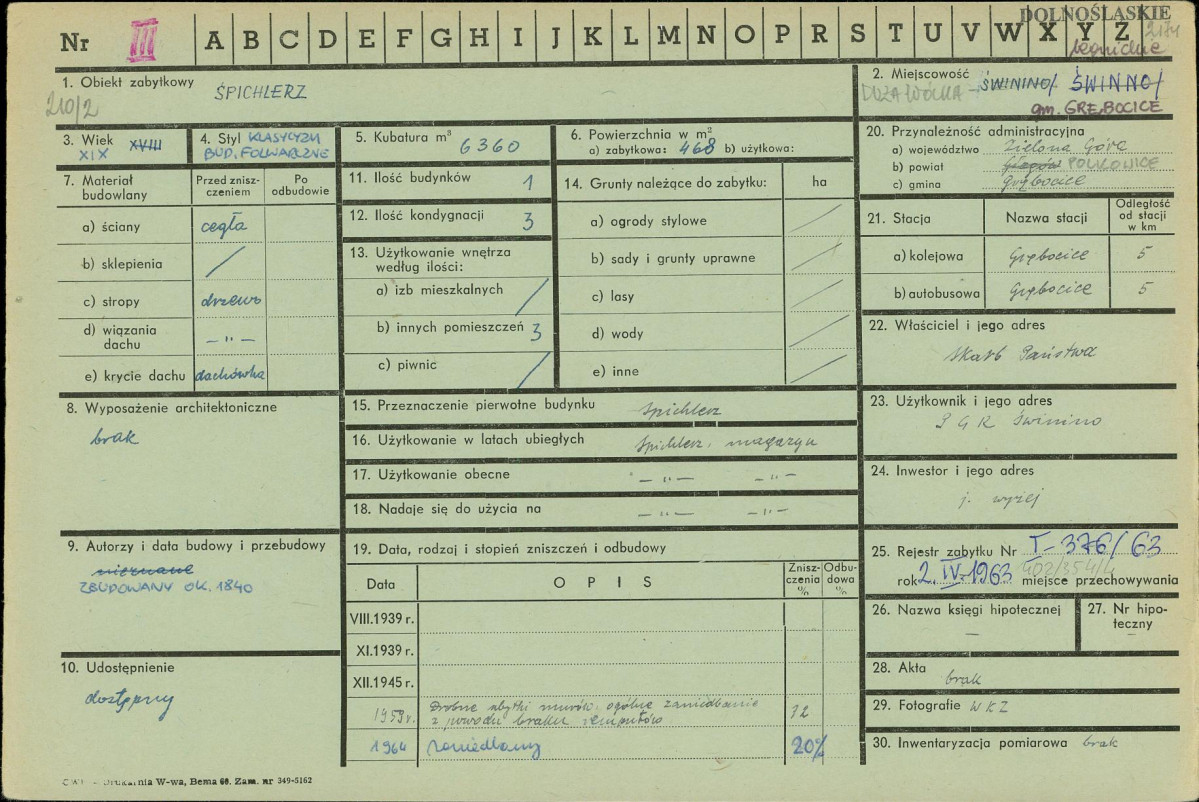 Nr III A B C D E F G H I J K L M N O P R S T U V W X Y Z
DOLNOŚLĄSKIE
legnickie
2174
1. Obiekt zabytkowy ŚPICHLERZ
210/2
2. Miejscowość ŚWININO/ ŚWINNO/
DUŻA WÓLKA
gm. GRĘBOCICE
3. Wiek XVIII
XIX
4. Styl KLASYCYZM
BUD. FOLWARCZNE
5. Kubatura m³ 6360
6. Powierzchnia w m²
a) zabytkowa: 468 b) użytkowa:
7. Materiał budowlany
Przed zniszczeniem
Po odbudowie
a) ściany cegła
b) sklepienia /
c) stropy drzewo
d) wiązania dachu — " —
e) krycie dachu dachówka
8. Wyposażenie architektoniczne
brak
9. Autorzy i data budowy i przebudowy
nieznane
ZBUDOWANY OK. 1840
10. Udostępnienie
dostępny
11. Ilość budynków 1
12. Ilość kondygnacji 3
13. Użytkowanie wnętrza
według ilości:
a) izb mieszkalnych /
b) innych pomieszczeń 3
c) piwnic /
14. Grunty należące do zabytku: ha
a) ogrody stylowe /
b) sady i grunty uprawne /
c) lasy /
d) wody /
e) inne /
15. Przeznaczenie pierwotne budynku spichlerz
16. Użytkowanie w latach ubiegłych spichlerz, magazyn
17. Użytkowanie obecne — " — — " —
18. Nadaje się do użycia na — " — — " —
19. Data, rodzaj i stopień zniszczeń i odbudowy
Data OPIS Zniszczenia % Odbudowa %
VIII.1939 r.
XI.1939 r.
XII.1945 r.
1959 r. Drobne ubytki murów, ogólne zaniedbanie
z powodu braku remontów 12
1964 zaniedbany 20%
20. Przynależność administracyjna
a) województwo Zielona Góra
b) powiat Głogów POLKOWICE
c) gmina Grębocice
21. Stacja Nazwa stacji Odległość od stacji w km
a) kolejowa Grębocice 5
b) autobusowa Grębocice 5
22. Właściciel i jego adres
Skarb Państwa
23. Użytkownik i jego adres
P G R Świnino
24. Inwestor i jego adres
j. wyżej
25. Rejestr zabytku Nr I-376/63
402/354/4
rok 2.IV.1963 miejsce przechowywania
26. Nazwa księgi hipotecznej
—
27. Nr hipoteczny
—
28. Akta brak
29. Fotografie WKZ
30. Inwentaryzacja pomiarowa brak
Drukarnia W-wa, Bema 60. Zam. nr 349-5162